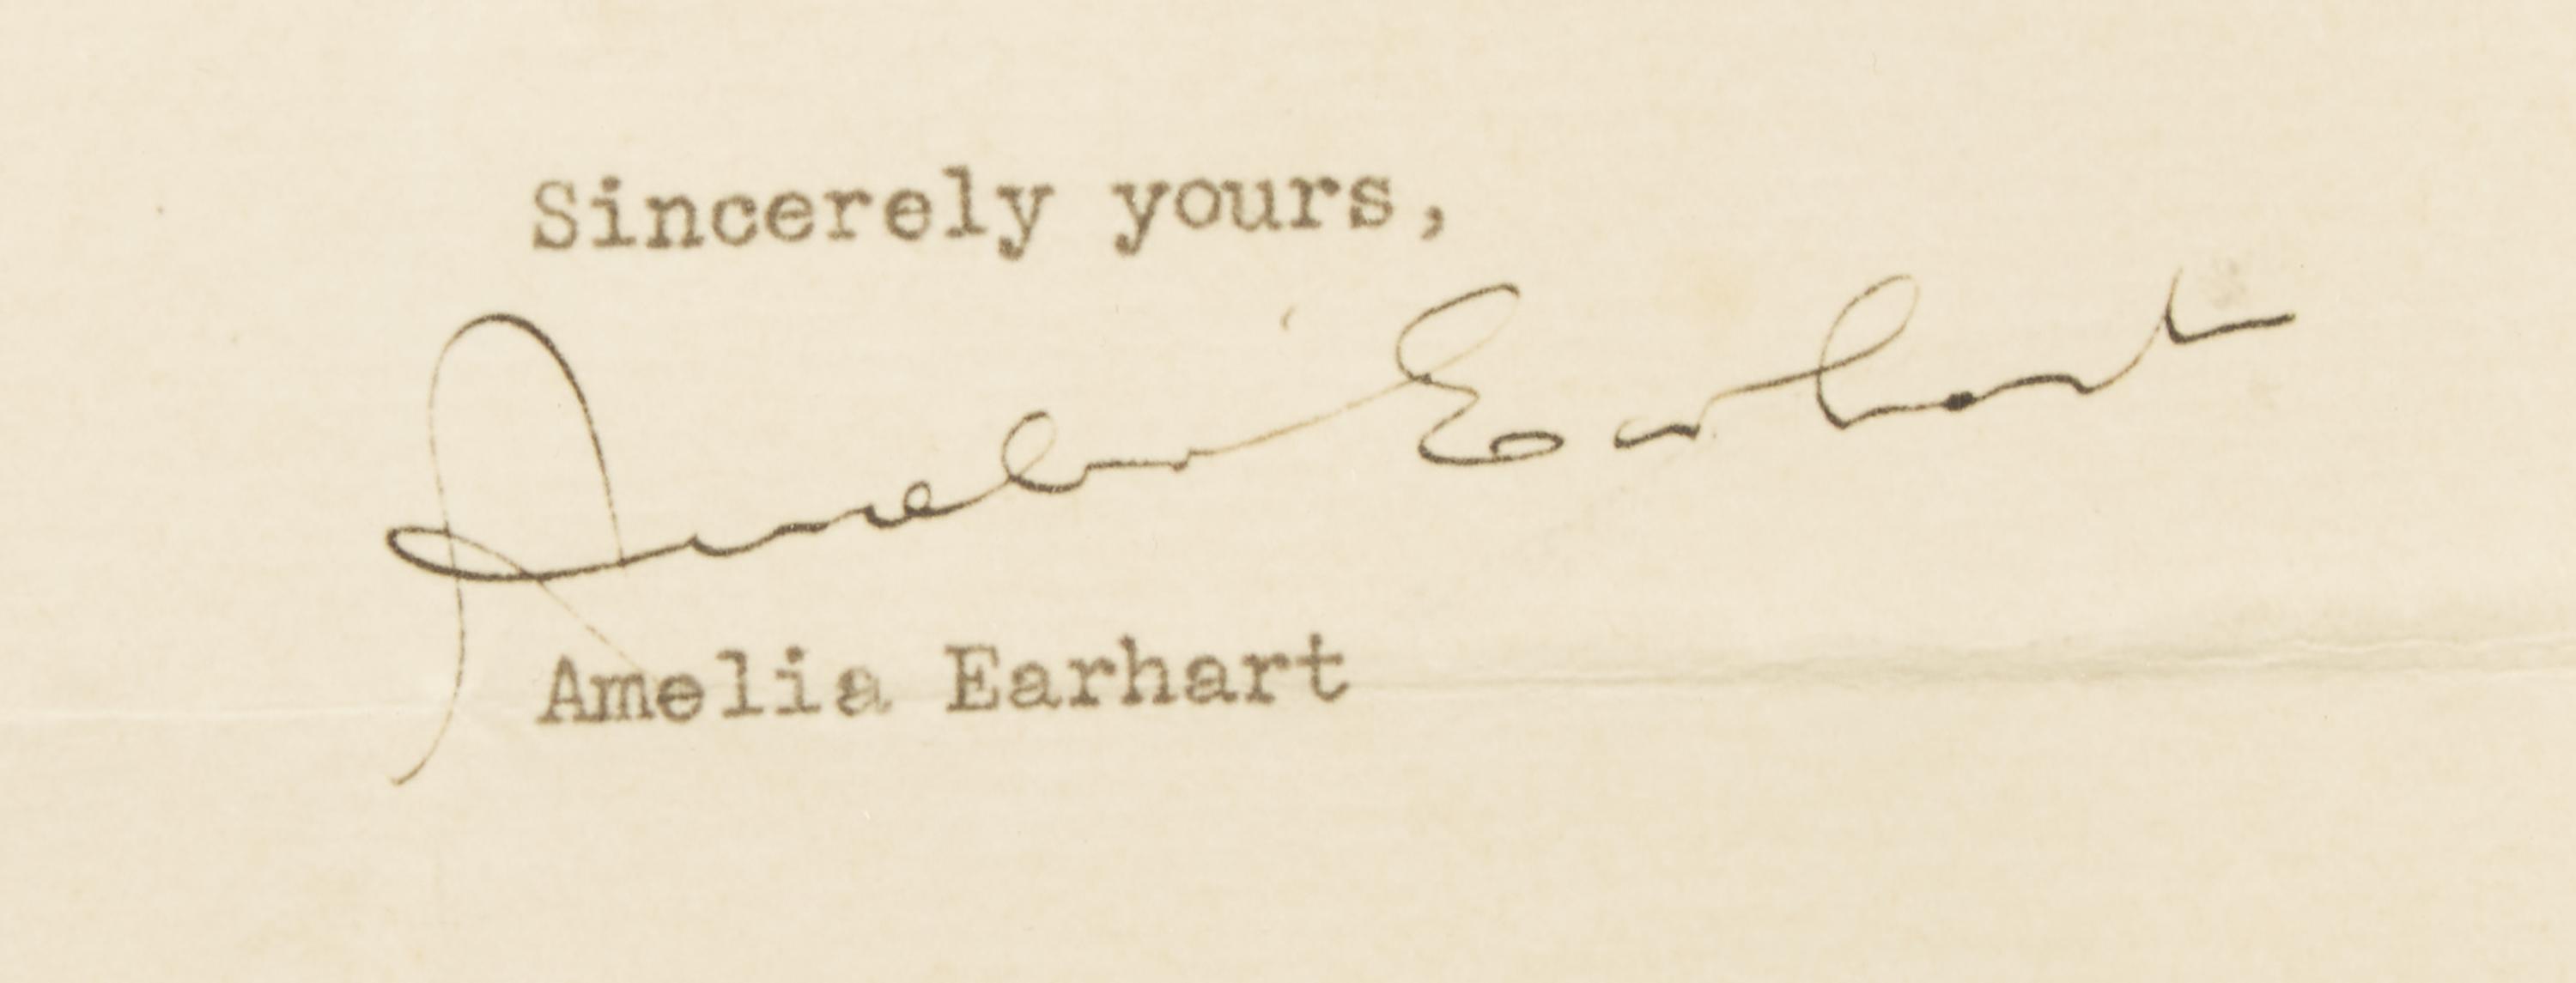 Sincerely yours,
Amelia Earhart
Amelia Earhart